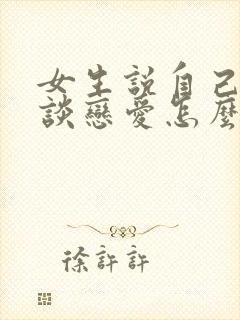 女生說自己
談戀愛怎麼
徐許許